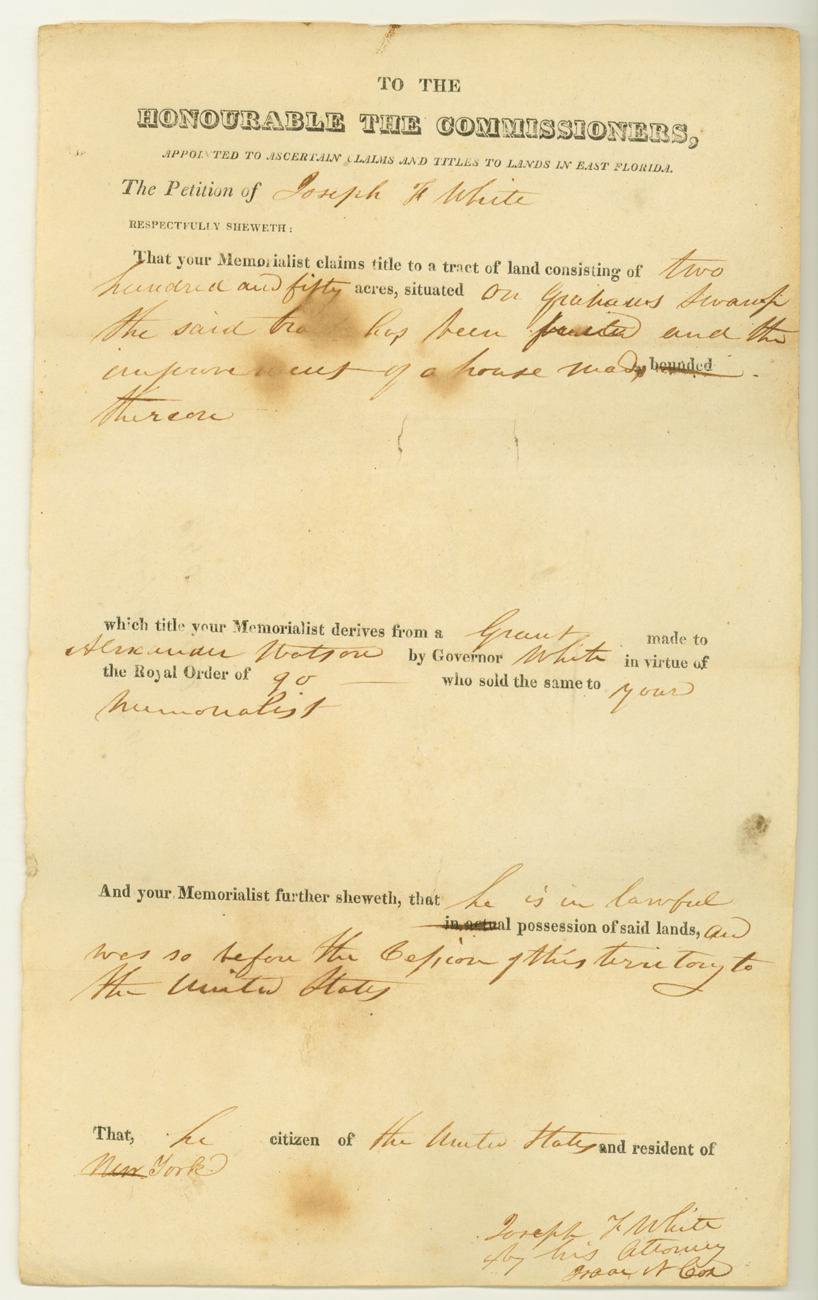 TO THE
HONOURABLE THE COMMISSIONERS,
APPOINTED TO ASCERTAIN CLAIMS AND TITLES TO LANDS IN EAST FLORIDA.
The Petition of Joseph F White
RESPECTFULLY SHEWETH:
That your Memorialist claims title to a tract of land consisting of two
hundred and fifty acres, situated on Grahams Swamp
the said tract has been and the
improvement of a house made bounded
thereon
which title your Memorialist derives from a Grant made to
Alexander Watson by Governor White in virtue of
the Royal Order of 90 who sold the same to your
Memorialist
And your Memorialist further sheweth, that he is in lawful
in actual possession of said lands, and
was so before the Cession of this territory to
the United States
That, he citizen of the United States and resident of
New York
Joseph F White
by his Attorney
Isaac N Cox